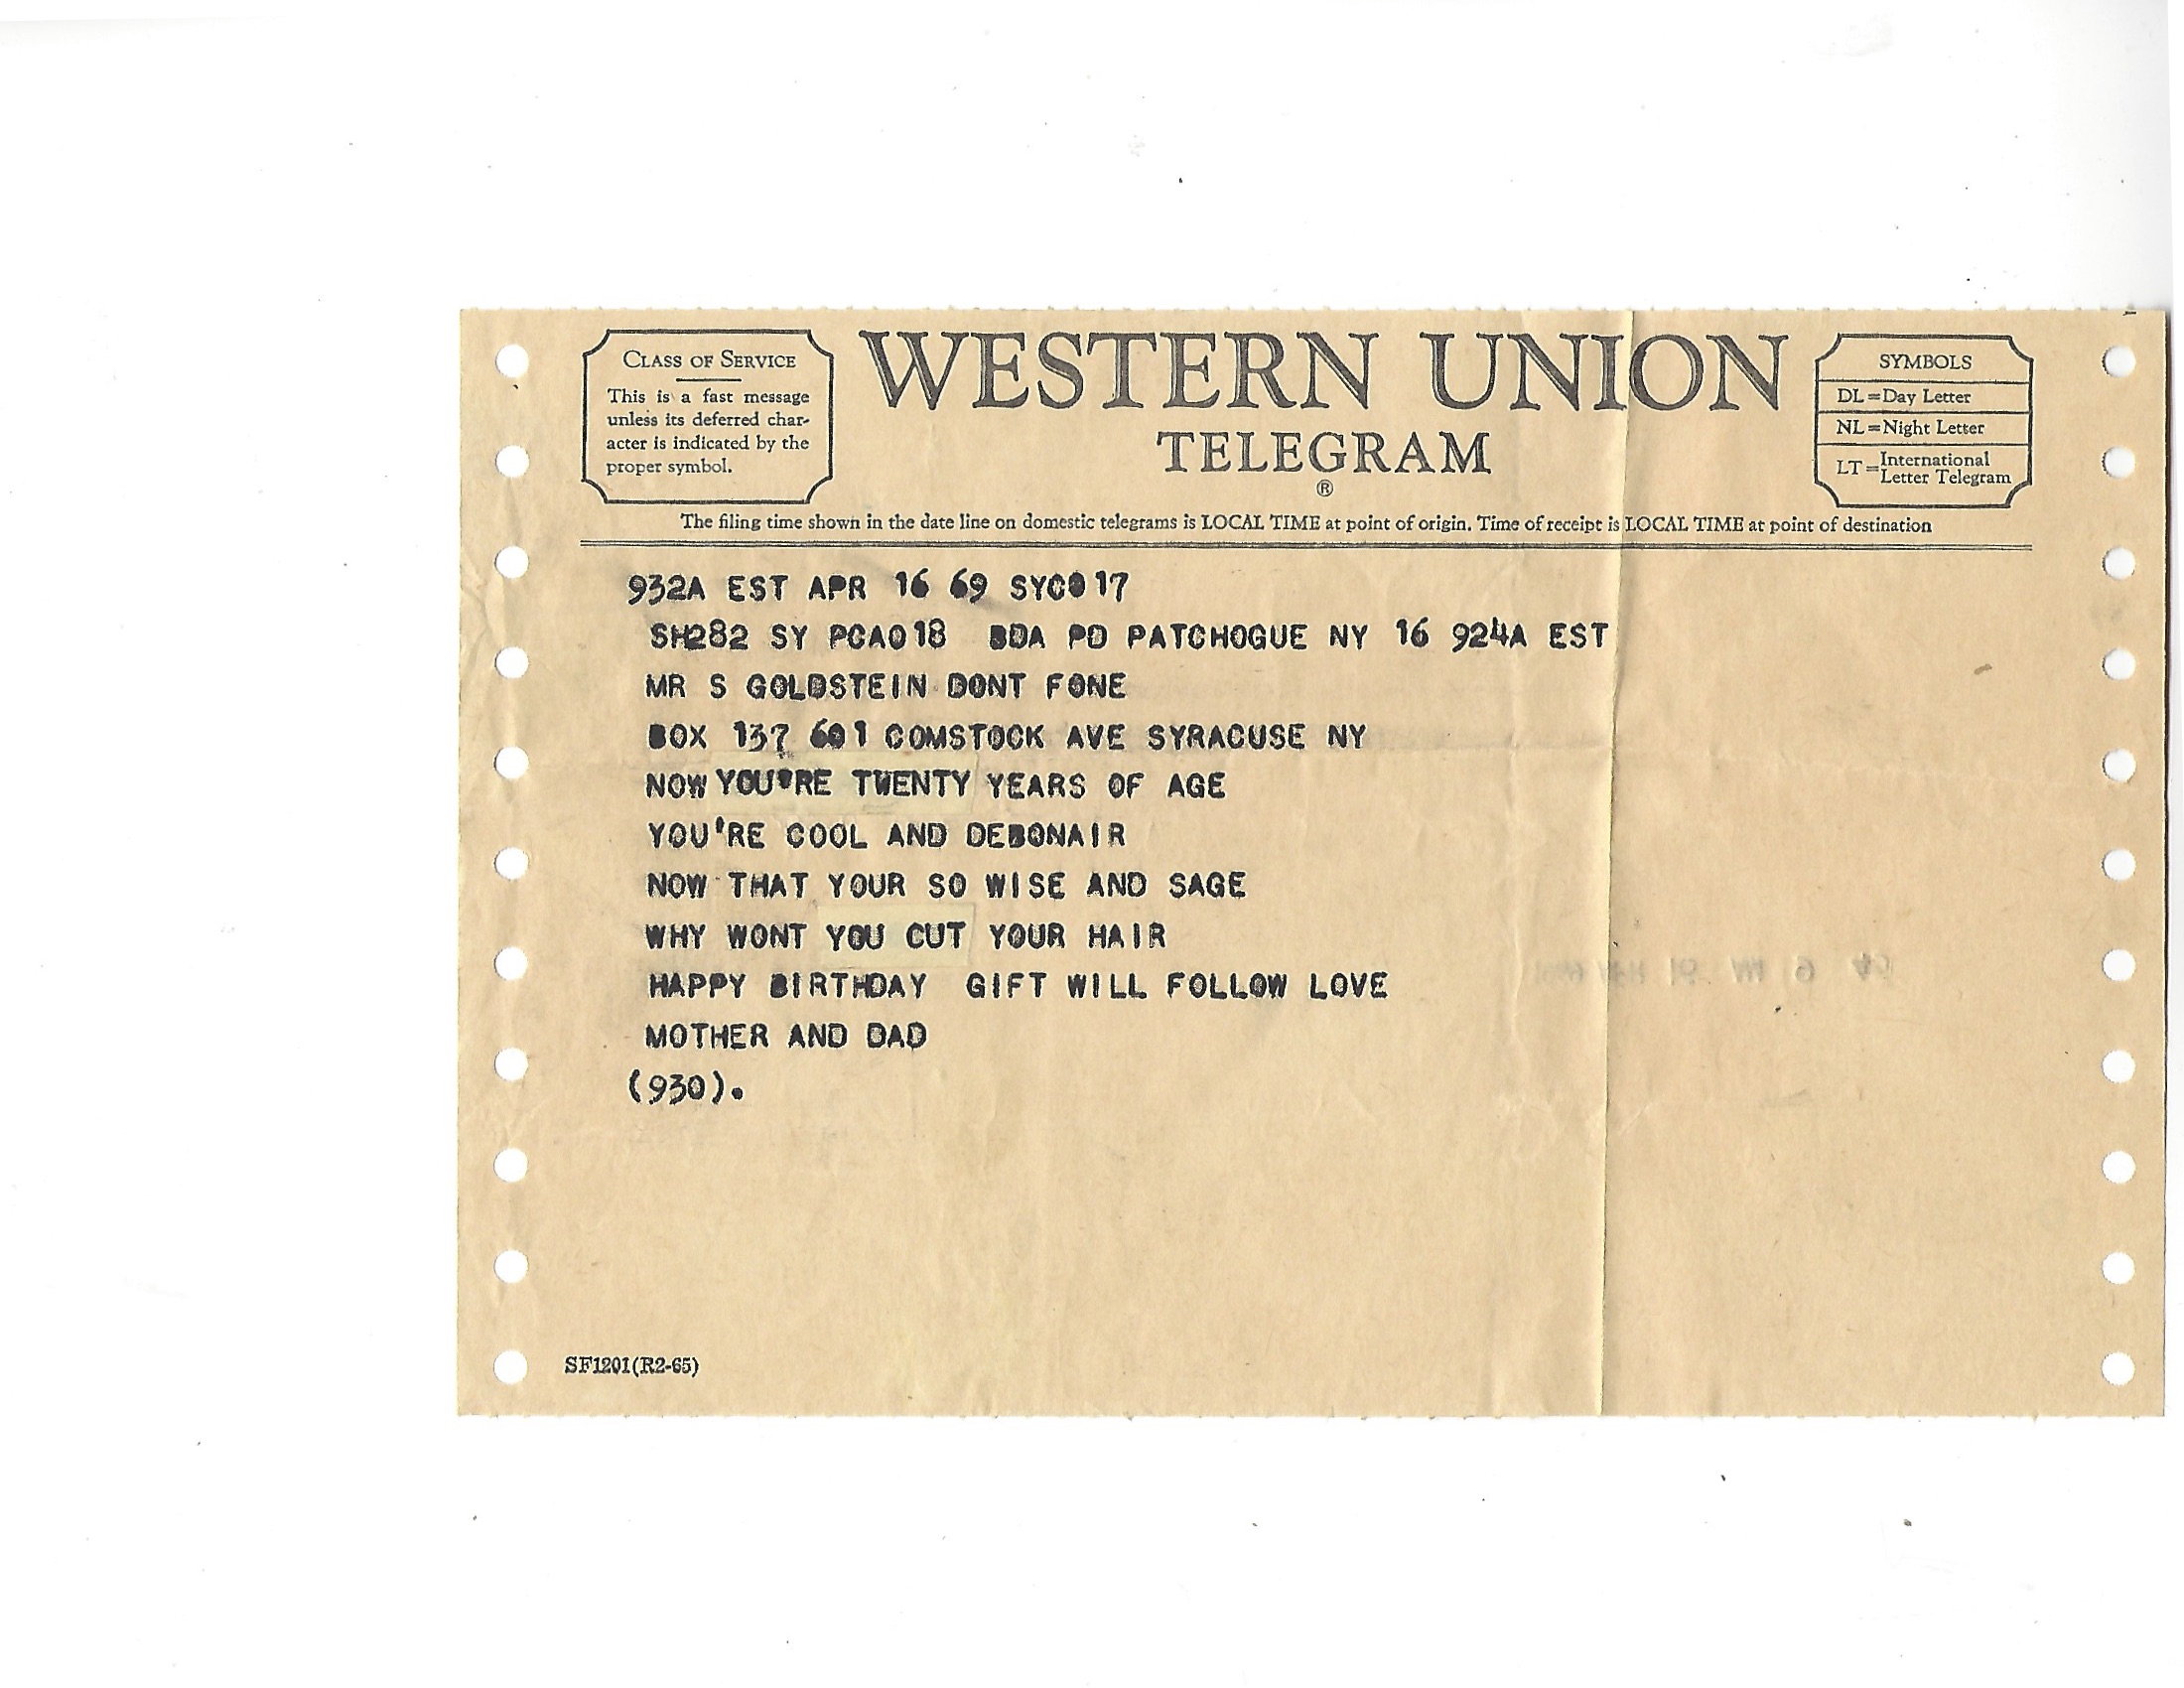 CLASS OF SERVICE
This is a fast message
unless its deferred char-
acter is indicated by the
proper symbol.
WESTERN UNION
TELEGRAM
®
SYMBOLS
DL=Day Letter
NL=Night Letter
LT=International Letter Telegram
The filing time shown in the date line on domestic telegrams is LOCAL TIME at point of origin. Time of receipt is LOCAL TIME at point of destination
932A EST APR 16 69 SYC017
SH282 SY PCA018 BDA PD PATCHOGUE NY 16 924A EST
MR S GOLDSTEIN DONT FONE
BOX 137 601 COMSTOCK AVE SYRACUSE NY
NOW YOU'RE TWENTY YEARS OF AGE
YOU'RE COOL AND DEBONAIR
NOW THAT YOUR SO WISE AND SAGE
WHY WONT YOU CUT YOUR HAIR
HAPPY BIRTHDAY GIFT WILL FOLLOW LOVE
MOTHER AND DAD
(930).
SF1201(R2-65)